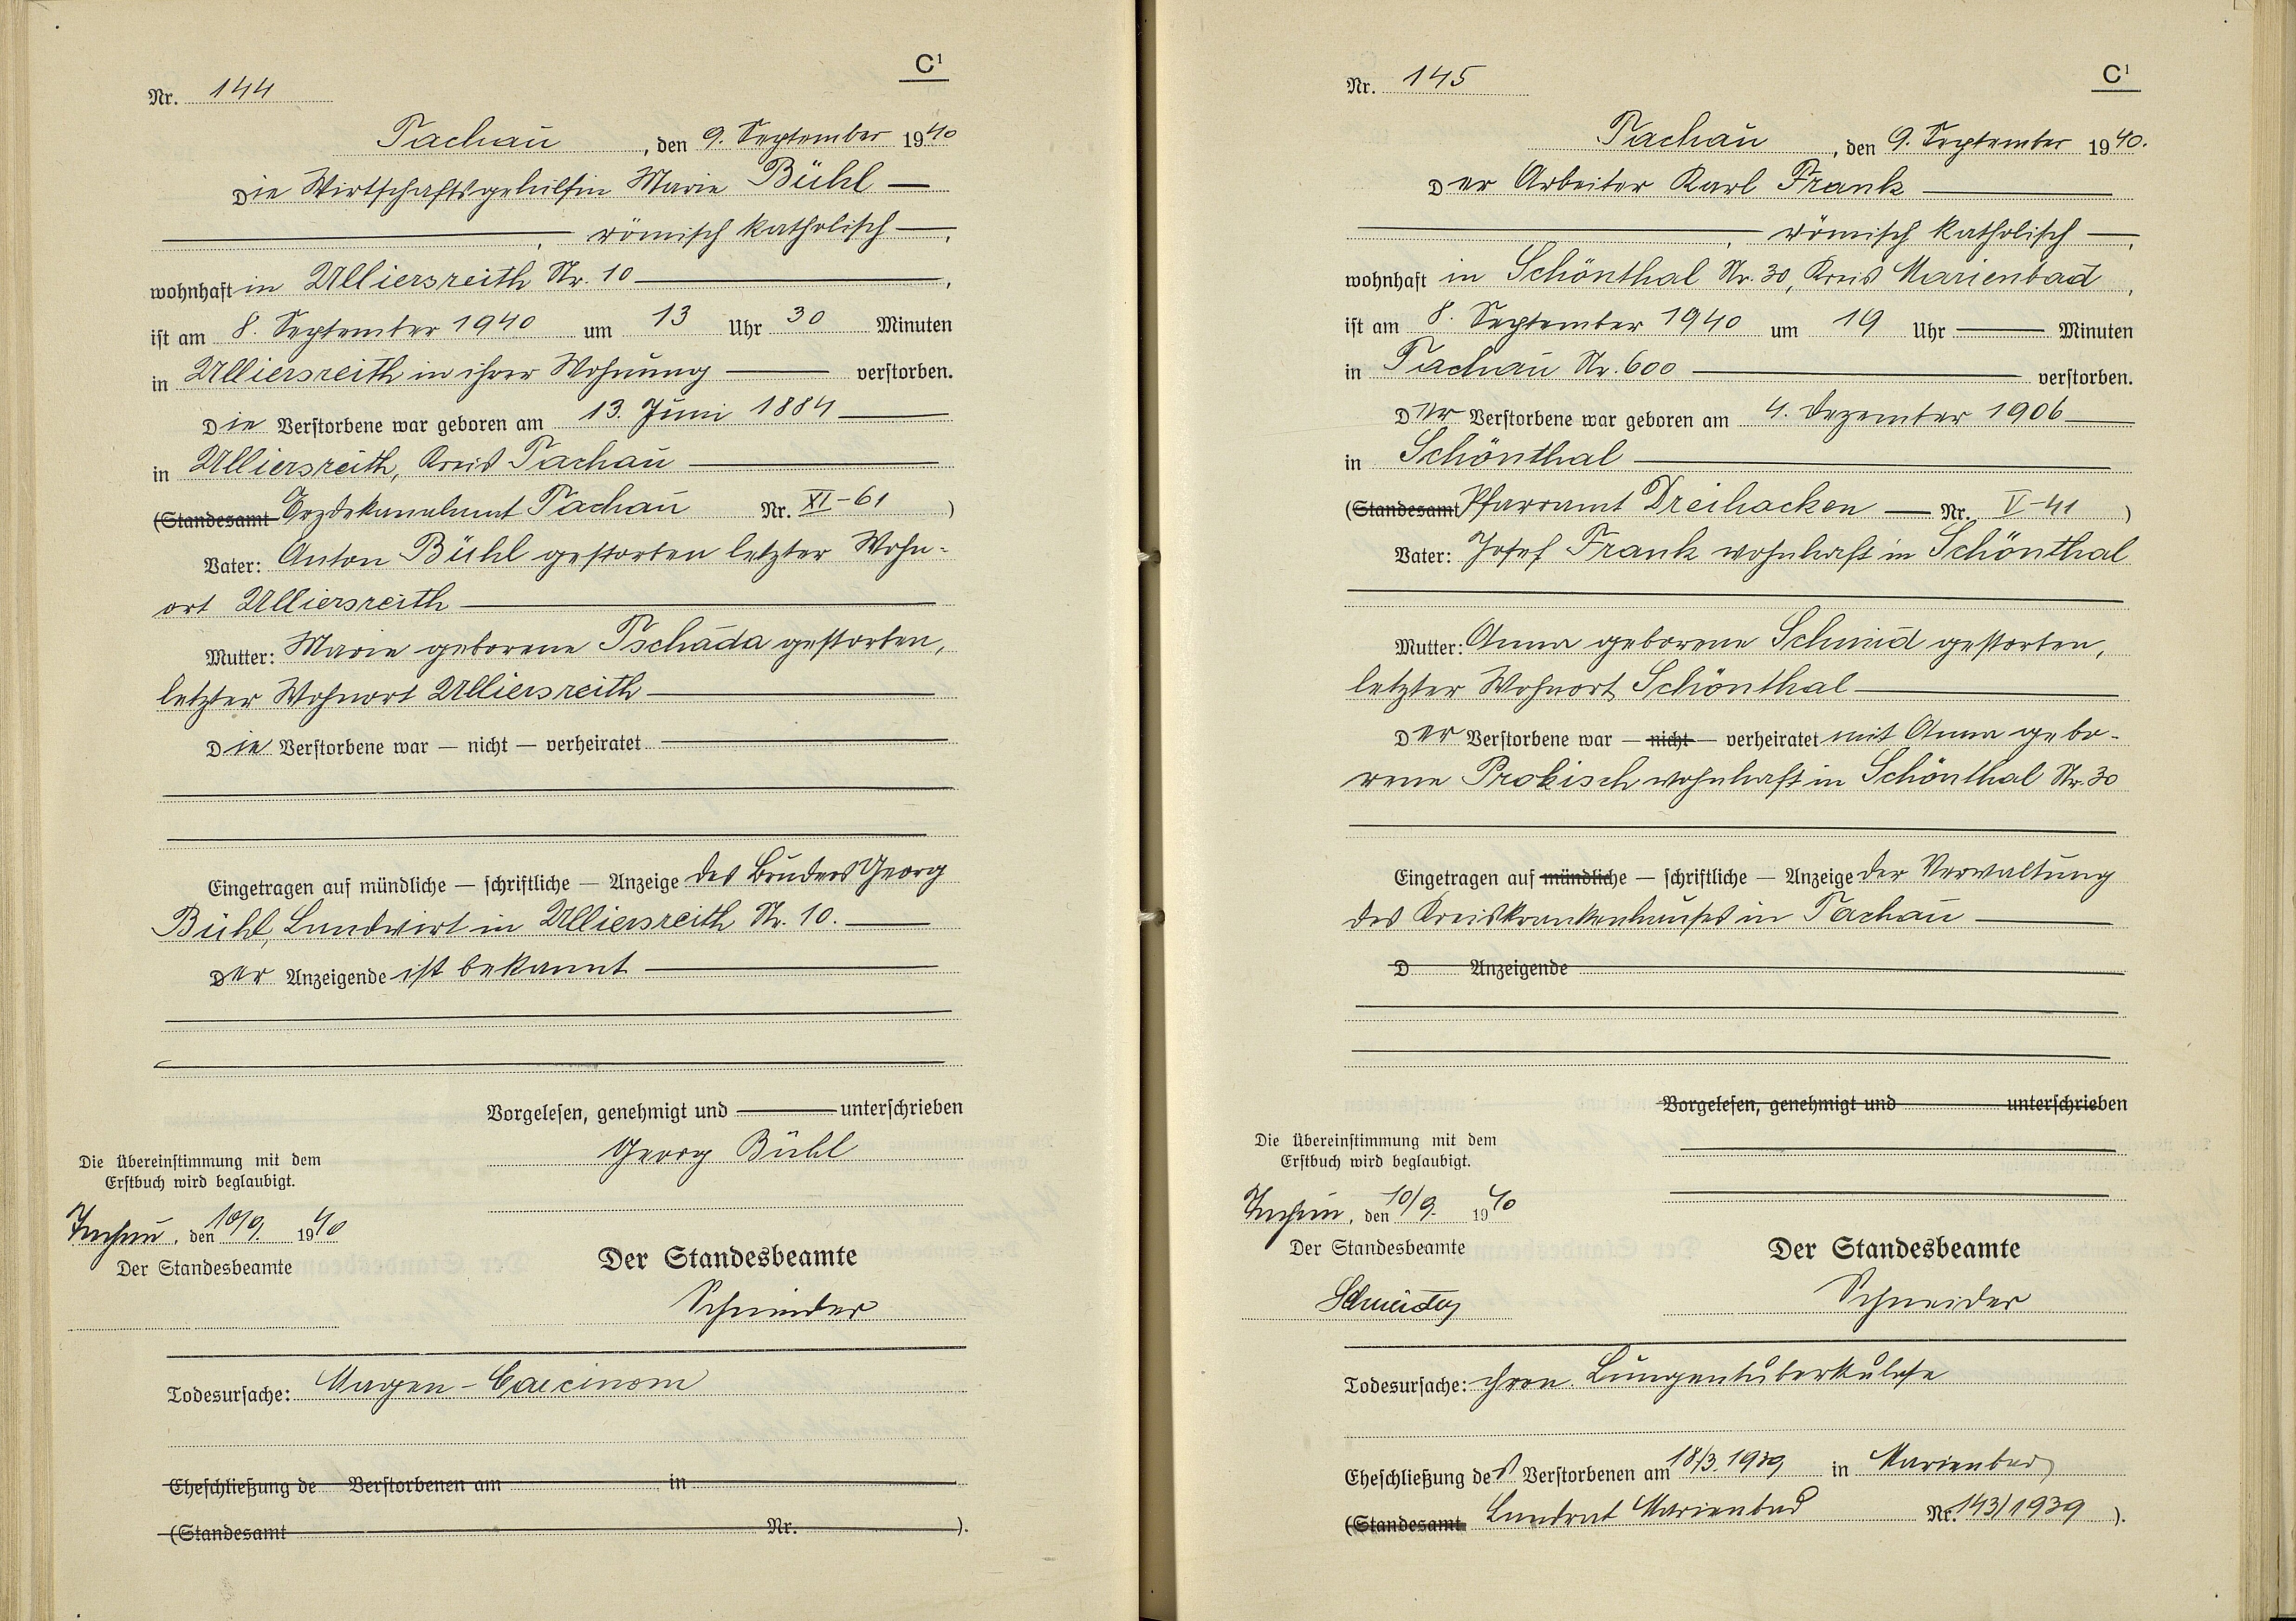 C¹
Nr. 144
Tachau, den 9. September 1940
Die Wirtschaftsgehilfin Marie Bühl —
—, römisch katholisch —,
wohnhaft in Ulliersreith Nr. 10 —,
ist am 8. September 1940 um 13 Uhr 30 Minuten
in Ulliersreith in ihrer Wohnung — verstorben.
Die Verstorbene war geboren am 13. Juni 1884 —
in Ulliersreith, Kreis Tachau —
(Standesamt Erzdekanalamt Tachau Nr. XI-61)
Vater: Anton Bühl gestorben letzter Wohn-
ort Ulliersreith —
Mutter: Marie geborene Tschada gestorben,
letzter Wohnort Ulliersreith —
Die Verstorbene war — nicht — verheiratet —
Eingetragen auf mündliche — schriftliche — Anzeige des Bruders Georg
Bühl, Landwirt in Ulliersreith Nr. 10. —
Der Anzeigende ist bekannt —
Vorgelesen, genehmigt und — unterschrieben
Georg Bühl
Die Übereinstimmung mit dem
Erstbuch wird beglaubigt.
Tachau, den 10/9. 1940
Der Standesbeamte
Der Standesbeamte
Schneider
Todesursache: Magen-Carcinom
Eheschließung de Verstorbenen am in
(Standesamt Nr. ).
C¹
Nr. 145
Tachau, den 9. September 1940.
Der Arbeiter Karl Frank —
—, römisch katholisch —,
wohnhaft in Schönthal Nr. 30, Kreis Marienbad,
ist am 8. September 1940 um 19 Uhr — Minuten
in Tachau Nr. 600 — verstorben.
Der Verstorbene war geboren am 4. Dezember 1906 —
in Schönthal —
(Standesamt Pfarramt Dreihacken — Nr. V-41)
Vater: Josef Frank wohnhaft in Schönthal
Mutter: Anna geborene Schmid gestorben,
letzter Wohnort Schönthal —
Der Verstorbene war — nicht — verheiratet mit Anna gebo-
rene Prokisch wohnhaft in Schönthal Nr. 30
Eingetragen auf mündliche — schriftliche — Anzeige der Verwaltung
des Kreiskrankenhauses in Tachau —
D Anzeigende
Vorgelesen, genehmigt und unterschrieben
Die Übereinstimmung mit dem
Erstbuch wird beglaubigt.
Tachau, den 10/9. 1940
Der Standesbeamte
Schneider
Der Standesbeamte
Schneider
Todesursache: chron. Lungentuberkulose
Eheschließung des Verstorbenen am 18/3. 1939 in Marienbad
(Standesamt Landrat Marienbad Nr. 143/1939).